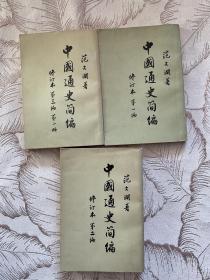 范文澜著
中國通史简编
修订本 第三编 第一册
范文澜著
中國通史简编
修订本 第一编
范文澜著
中國通史简编
修订本 第二编